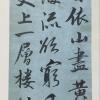 依山盡黃
海流欲窮
上一層樓